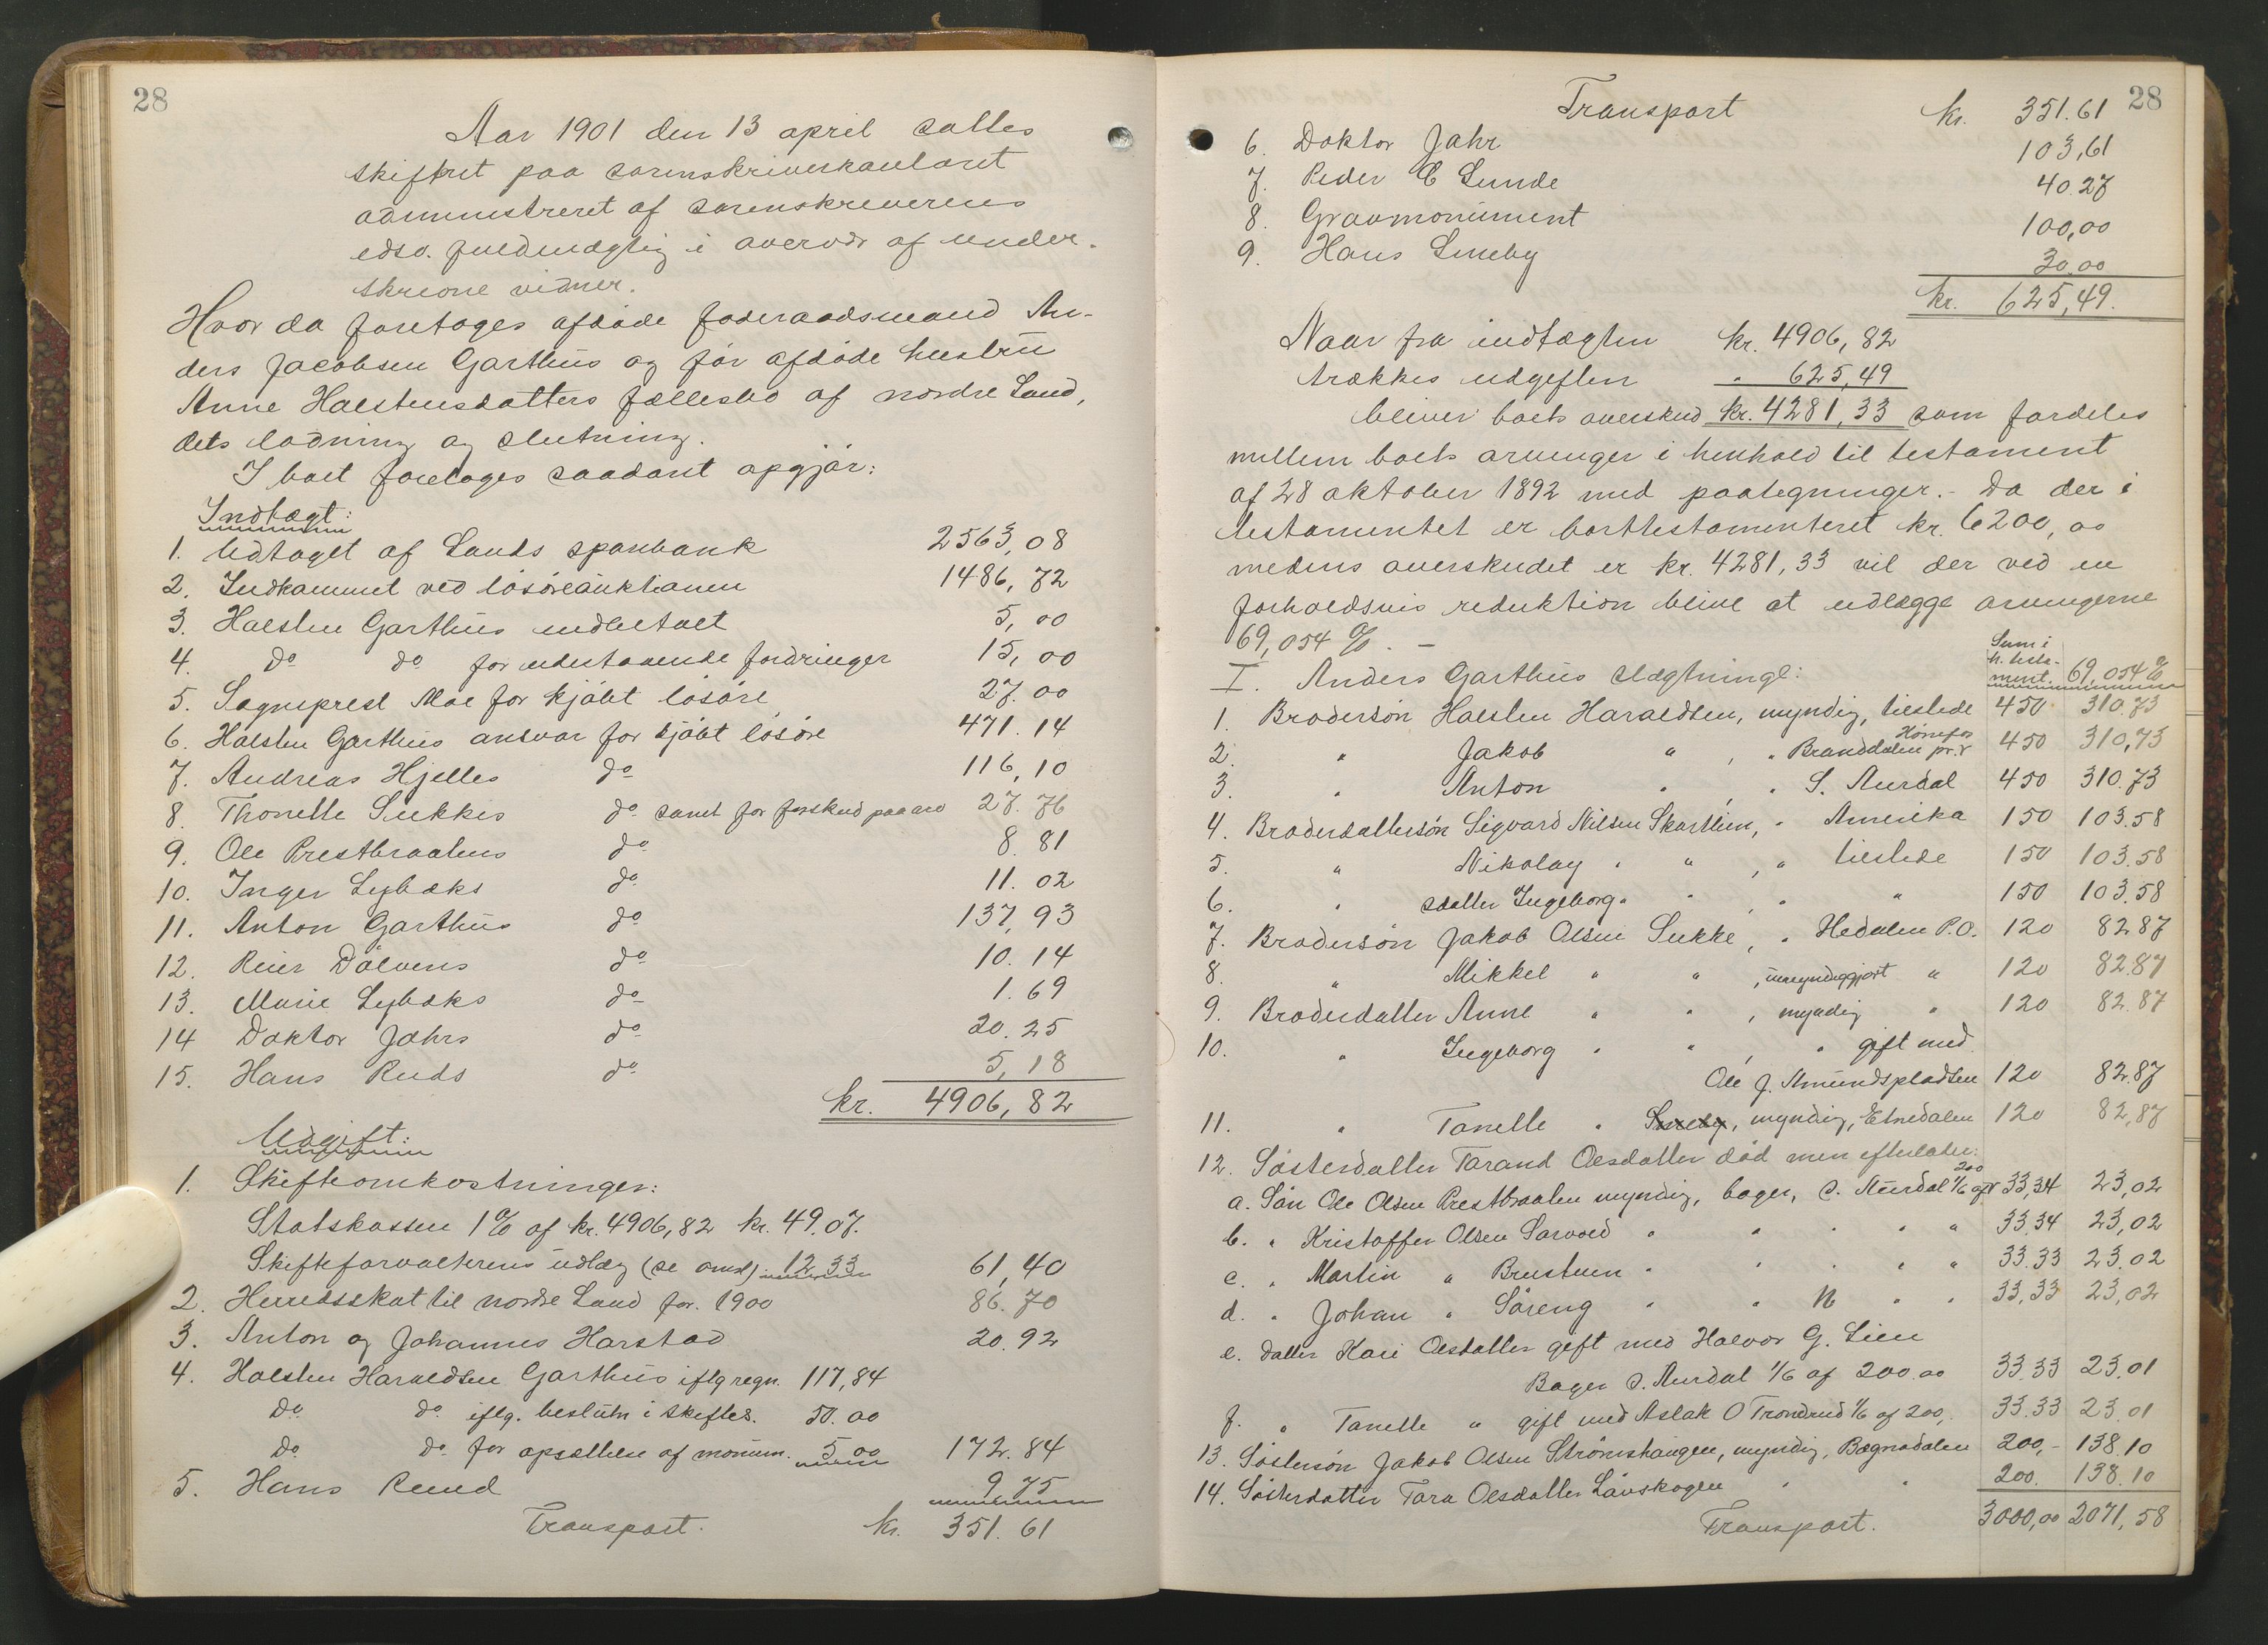 28
Aar 1901 den 13 april sattes
skifteret paa sorenskriverkontoret
administreret af sorenskriverens
edsv. fuldmægtig i overvær af under-
skrevne vidner.
Hvor da foretoges afdøde føderaadsmand An-
ders Jacobsen Garthus og før afdøde hustru
Anne Halstensdatters fællesbo af nordre Land,
dets lodning og slutning.
I boet foretoges saadant opgjør:
Indtægt:
1. Udtaget af Lands sparebank 2563,08
2. Indkommet ved løsøreauktionen 1486,72
3. Halsten Garthus indbetalt 5,00
4. do do for udestaaende fordringer 15,00
5. Sogneprest Moe for kjøbt løsøre 27.00
6. Halsten Garthus ansvar for kjøbt løsøre 471.14
7. Andreas Hjelles do 116,10
8. Thonette Sukkes do samt for forskud paa arv 27.76
9. Ole Prestbraatens do 8.81
10. Inger Lybæks do 11.02
11. Anton Garthus do 137,93
12. Reier Dølvens do 10.14
13. Marie Lybæks do 1.69
14 Doktor Jahrs do 20.25
15. Hans Ruds do 5,18
kr. 4906,82
Udgift:
1. Skifteomkostninger:
Statskassen 1% af kr. 4906,82 kr. 49.07.
Skifteforvalterens udlæg (se omsl) 12.33 61,40
2. Herredsskat til nordre Land for 1900 86.70
3. Anton og Johannes Harstad 20.92
4. Halsten Haraldsen Garthus iflg regn. 117,84
do do iflg. beslutn i skiftes. 50.00
do do for opsættelse af monum. 5.00 172.84
5. Hans Ruud 9.75
Transport. kr. 351.61
28
Transport kr. 351.61
6. Doktor Jahr 103,61
7. Peder C Lunde 40.27
8. Gravmonument 100,00
9. Hans Smeby 30.00
kr. 625,49.
Naar fra indtægten kr. 4906,82
trækkes udgiften " 625,49
bliver boets overskud kr. 4281,33 som fordeles
mellem boets arvinger i henhold til testament
af 28 oktober 1892 med paategninger. - Da der i
testamentet er borttestamenteret kr. 6200,00
medens overskudet er kr. 4281,33 vil der ved en
forholdsvis reduktion blive at udlægge arvingerne
69,054 %. -
Sum i h. testa-ment. 69,054 %
I. Anders Garthus slægtninge:
1. Brodersøn Halsten Haraldsen, myndig, tilstede 450 310.73
2. " Jakob " , " Branddalen pr. Hønefos 450 310,73
3. " Anton " , " S. Aurdal 450 310.73
4. Broderdattersøn Sigvard Nilsen Skartlien, " Amerika 150 103.58
5. " Nikolay " " , " tilstede 150 103.58
6. " sdatter Ingeborg " " , " " 150 103.58
7. Brodersøn Jakob Olsen Sukke, " Hedalen P.O. 120 82.87
8. " Mikkel " " , umyndiggjort " 120 82.87
9. Broderdatter Anne " " , myndig " 120 82.87
10. " Ingeborg " " , " gift med
Ole J. Amundspladsen 120 82.87
11. " Tonette " Smeby, myndig, Etnedalen 120 82,87
12. Søsterdatter Torand Olsdatter død men efterlader:
a. Søn Ole Olsen Prestbraaten myndig, bager, S. Aurdal 1/6 af 200 33,34 23,02
b. " Kristoffer Olsen Sarvold " " " " " 33.34 23,02
c. " Martin " Brustuen " " " " " 33.33 23.02
d. " Johan " Søreng " " N " " 33,33 23,02
e. datter Kari Olsdatter gift med Halvor G. Lien
Bager S. Aurdal 1/6 af 200.00 33.33 23.01
f. " Tonette " gift med Aslak O Trondrud 1/6 af 200, 33.33 23.01
13. Søstersøn Jakob Olsen Strømshaugen, myndig, Bægnadalen 200,- 138.10
14. Søsterdatter Tora Olsdatter Løvskogen " " 200. 138.10
Transport. 3000,00 2071,58